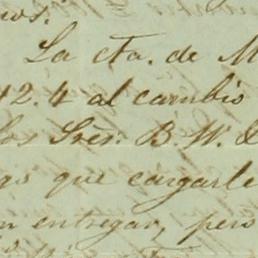 La cta. de M
42.4 al cambio
los Sres. B. W. &
que cargarle
entregar, pero